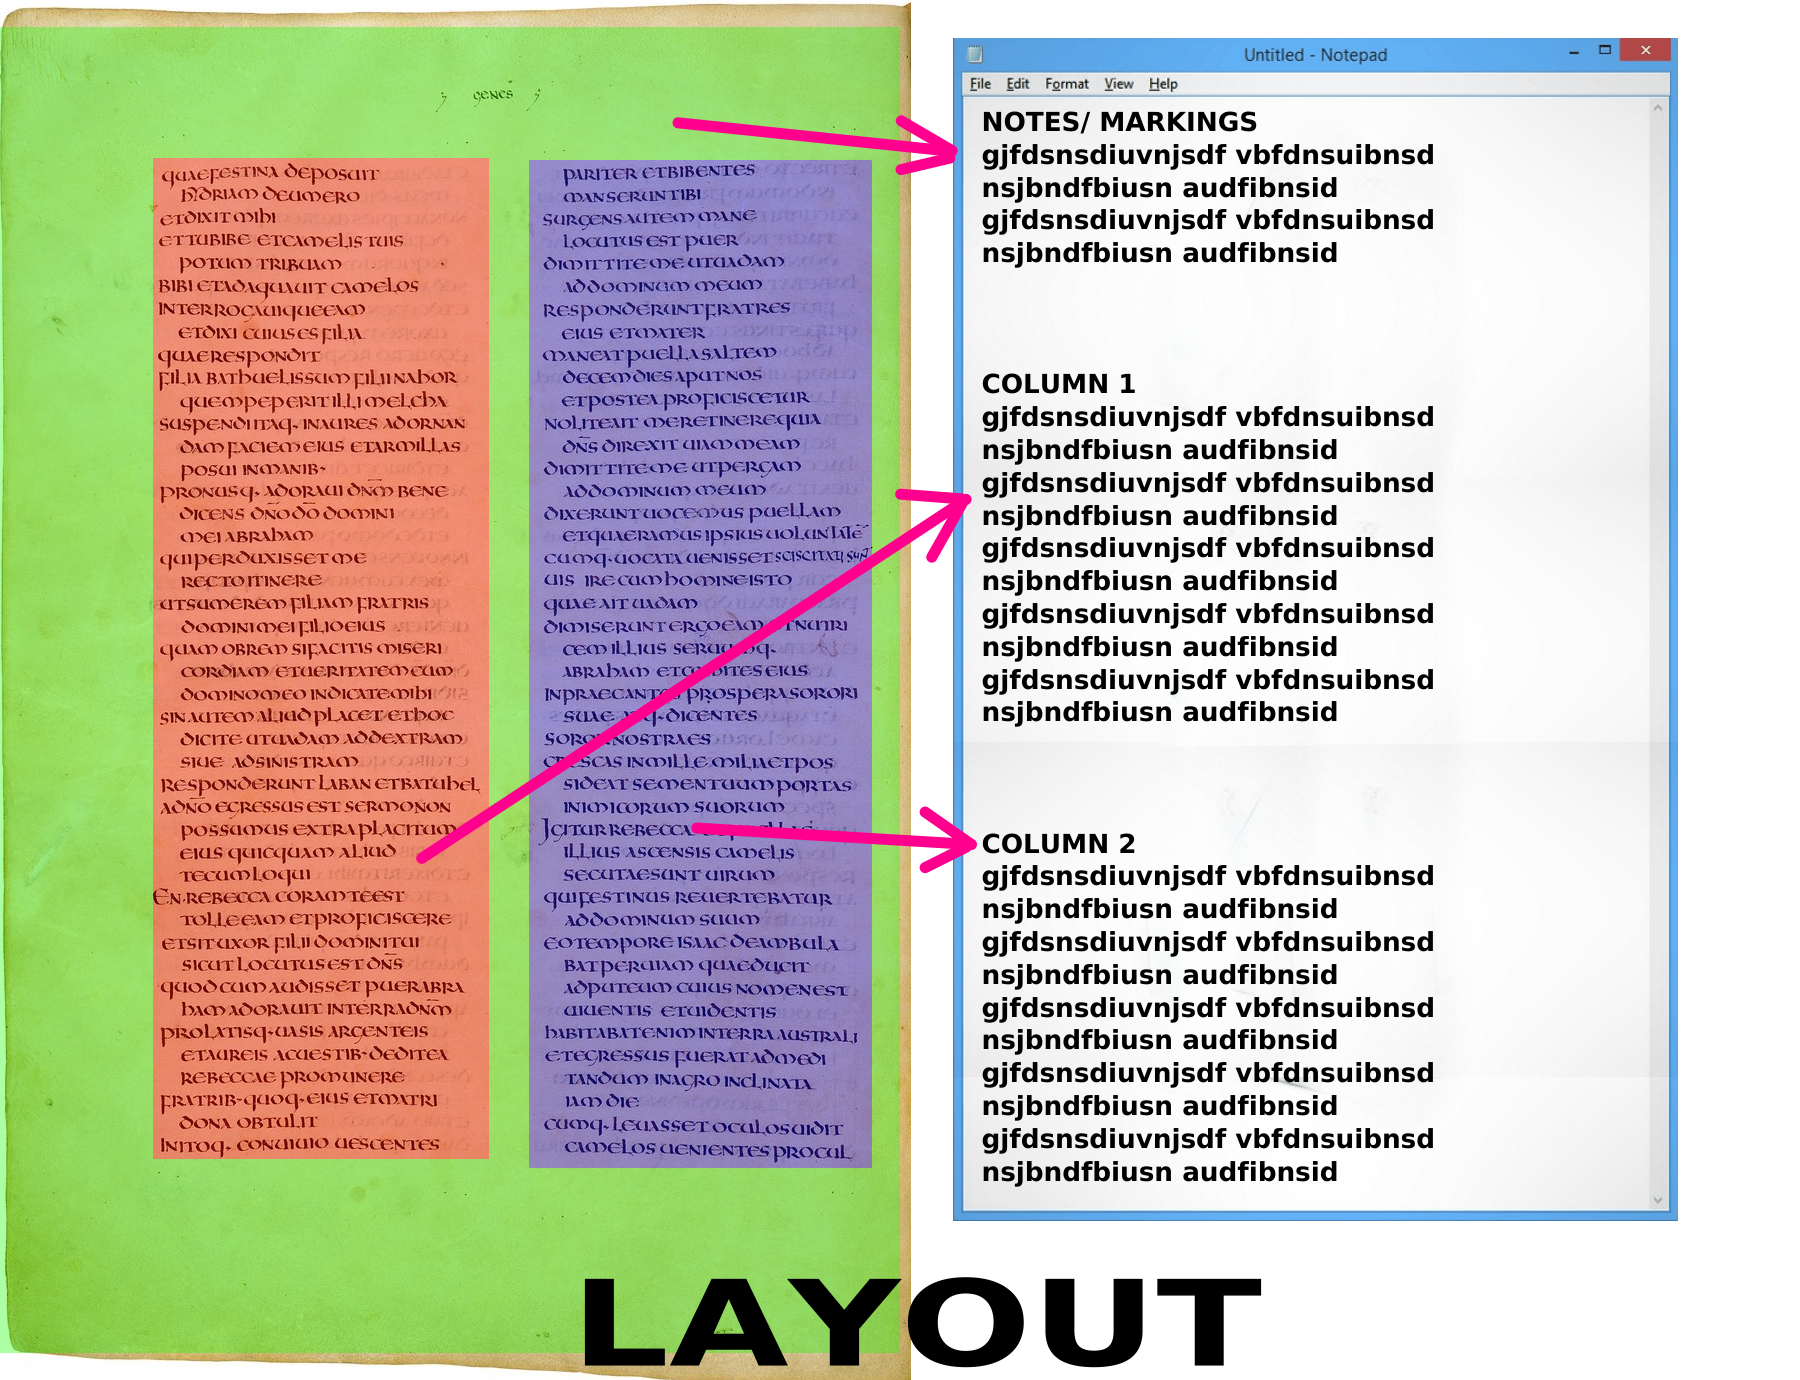 GENES
quae festina deposuit
hydriam de umero
et dixit mihi
et tu bibe et camelis tuis
potum tribuam
bibi et adaquauit camelos
interrogauique eam
et dixi cuius es filia
quae respondit
filia bathuelis sum filii nahor
quem peperit illi melcha
suspendi itaq· inaures ad ornan
dam faciem eius et armillas
posui in manib·
pronusq· adoraui dn̄m bene
dicens dn̄o dō domini
mei abraham
qui perduxisset me
recto itinere
ut sumerem filiam fratris
domini mei filio eius
quam obrem si facitis miseri
cordiam et ueritatem cum
domino meo indicate mihi
sin autem aliud placet et hoc
dicite ut uadam ad dextram
siue ad sinistram
responderunt laban et batuhel
a dn̄o egressus est sermo non
possumus extra placitum
eius quicquam aliud
tecum loqui
En rebecca coram te est
tolle eam et proficiscere
et sit uxor filii domini tui
sicut locutus est dn̄s
quod cum audisset puer abra
ham adorauit in terra dn̄m
prolatisq· uasis argenteis
et aureis ac uestib· dedit ea
rebeccae pro munere
fratrib· quoq· eius et matri
dona obtulit
initoq· conuiuio uescentes
pariter et bibentes
manserunt ibi
surgens autem mane
locutus est puer
dimittite me ut uadam
ad dominum meum
responderunt fratres
eius et mater
maneat puella saltem
decem dies aput nos
et postea proficiscetur
nolite ait me retinere quia
dn̄s direxit uiam meam
dimittite me ut pergam
ad dominum meum
dixerunt uocemus puellam
et quaeramus ipsius uoluntatē
cumq· uocata uenisset sciscitati sunt
uis ire cum homine isto
quae ait uadam
dimiserunt ergo eam et nutri
cem illius seruumq·
abraham et comites eius
inpraecantes prospera sorori
suae atq· dicentes
soror nostra es
crescas in mille milia et pos
sideat semen tuum portas
inimicorum suorum
Igitur rebecca et puellae
illius ascensis camelis
secutae sunt uirum
qui festinus reuertebatur
ad dominum suum
eo tempore isaac deambula
bat per uiam quae ducit
ad puteum cuius nomen est
uiuentis et uidentis
habitabat enim in terra australi
et egressus fuerat ad medi
tandum in agro inclinata
iam die
cumq· leuasset oculos uidit
camelos uenientes procul
Untitled - Notepad
File Edit Format View Help
NOTES/ MARKINGS
gjfdsnsdiuvnjsdf vbfdnsuibnsd
nsjbndfbiusn audfibnsid
gjfdsnsdiuvnjsdf vbfdnsuibnsd
nsjbndfbiusn audfibnsid
COLUMN 1
gjfdsnsdiuvnjsdf vbfdnsuibnsd
nsjbndfbiusn audfibnsid
gjfdsnsdiuvnjsdf vbfdnsuibnsd
nsjbndfbiusn audfibnsid
gjfdsnsdiuvnjsdf vbfdnsuibnsd
nsjbndfbiusn audfibnsid
gjfdsnsdiuvnjsdf vbfdnsuibnsd
nsjbndfbiusn audfibnsid
gjfdsnsdiuvnjsdf vbfdnsuibnsd
nsjbndfbiusn audfibnsid
COLUMN 2
gjfdsnsdiuvnjsdf vbfdnsuibnsd
nsjbndfbiusn audfibnsid
gjfdsnsdiuvnjsdf vbfdnsuibnsd
nsjbndfbiusn audfibnsid
gjfdsnsdiuvnjsdf vbfdnsuibnsd
nsjbndfbiusn audfibnsid
gjfdsnsdiuvnjsdf vbfdnsuibnsd
nsjbndfbiusn audfibnsid
gjfdsnsdiuvnjsdf vbfdnsuibnsd
nsjbndfbiusn audfibnsid
LAYOUT